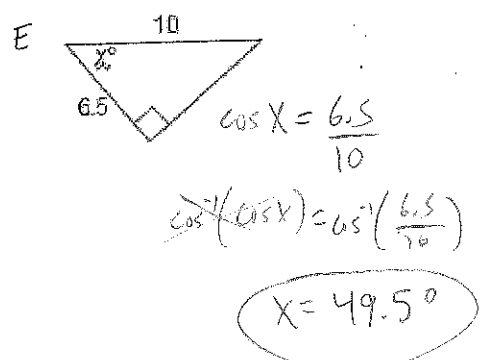 E
10
x°
6.5
cos X = 6.5/10
cos⁻¹(cos X) = cos⁻¹(6.5/10)
X = 49.5°